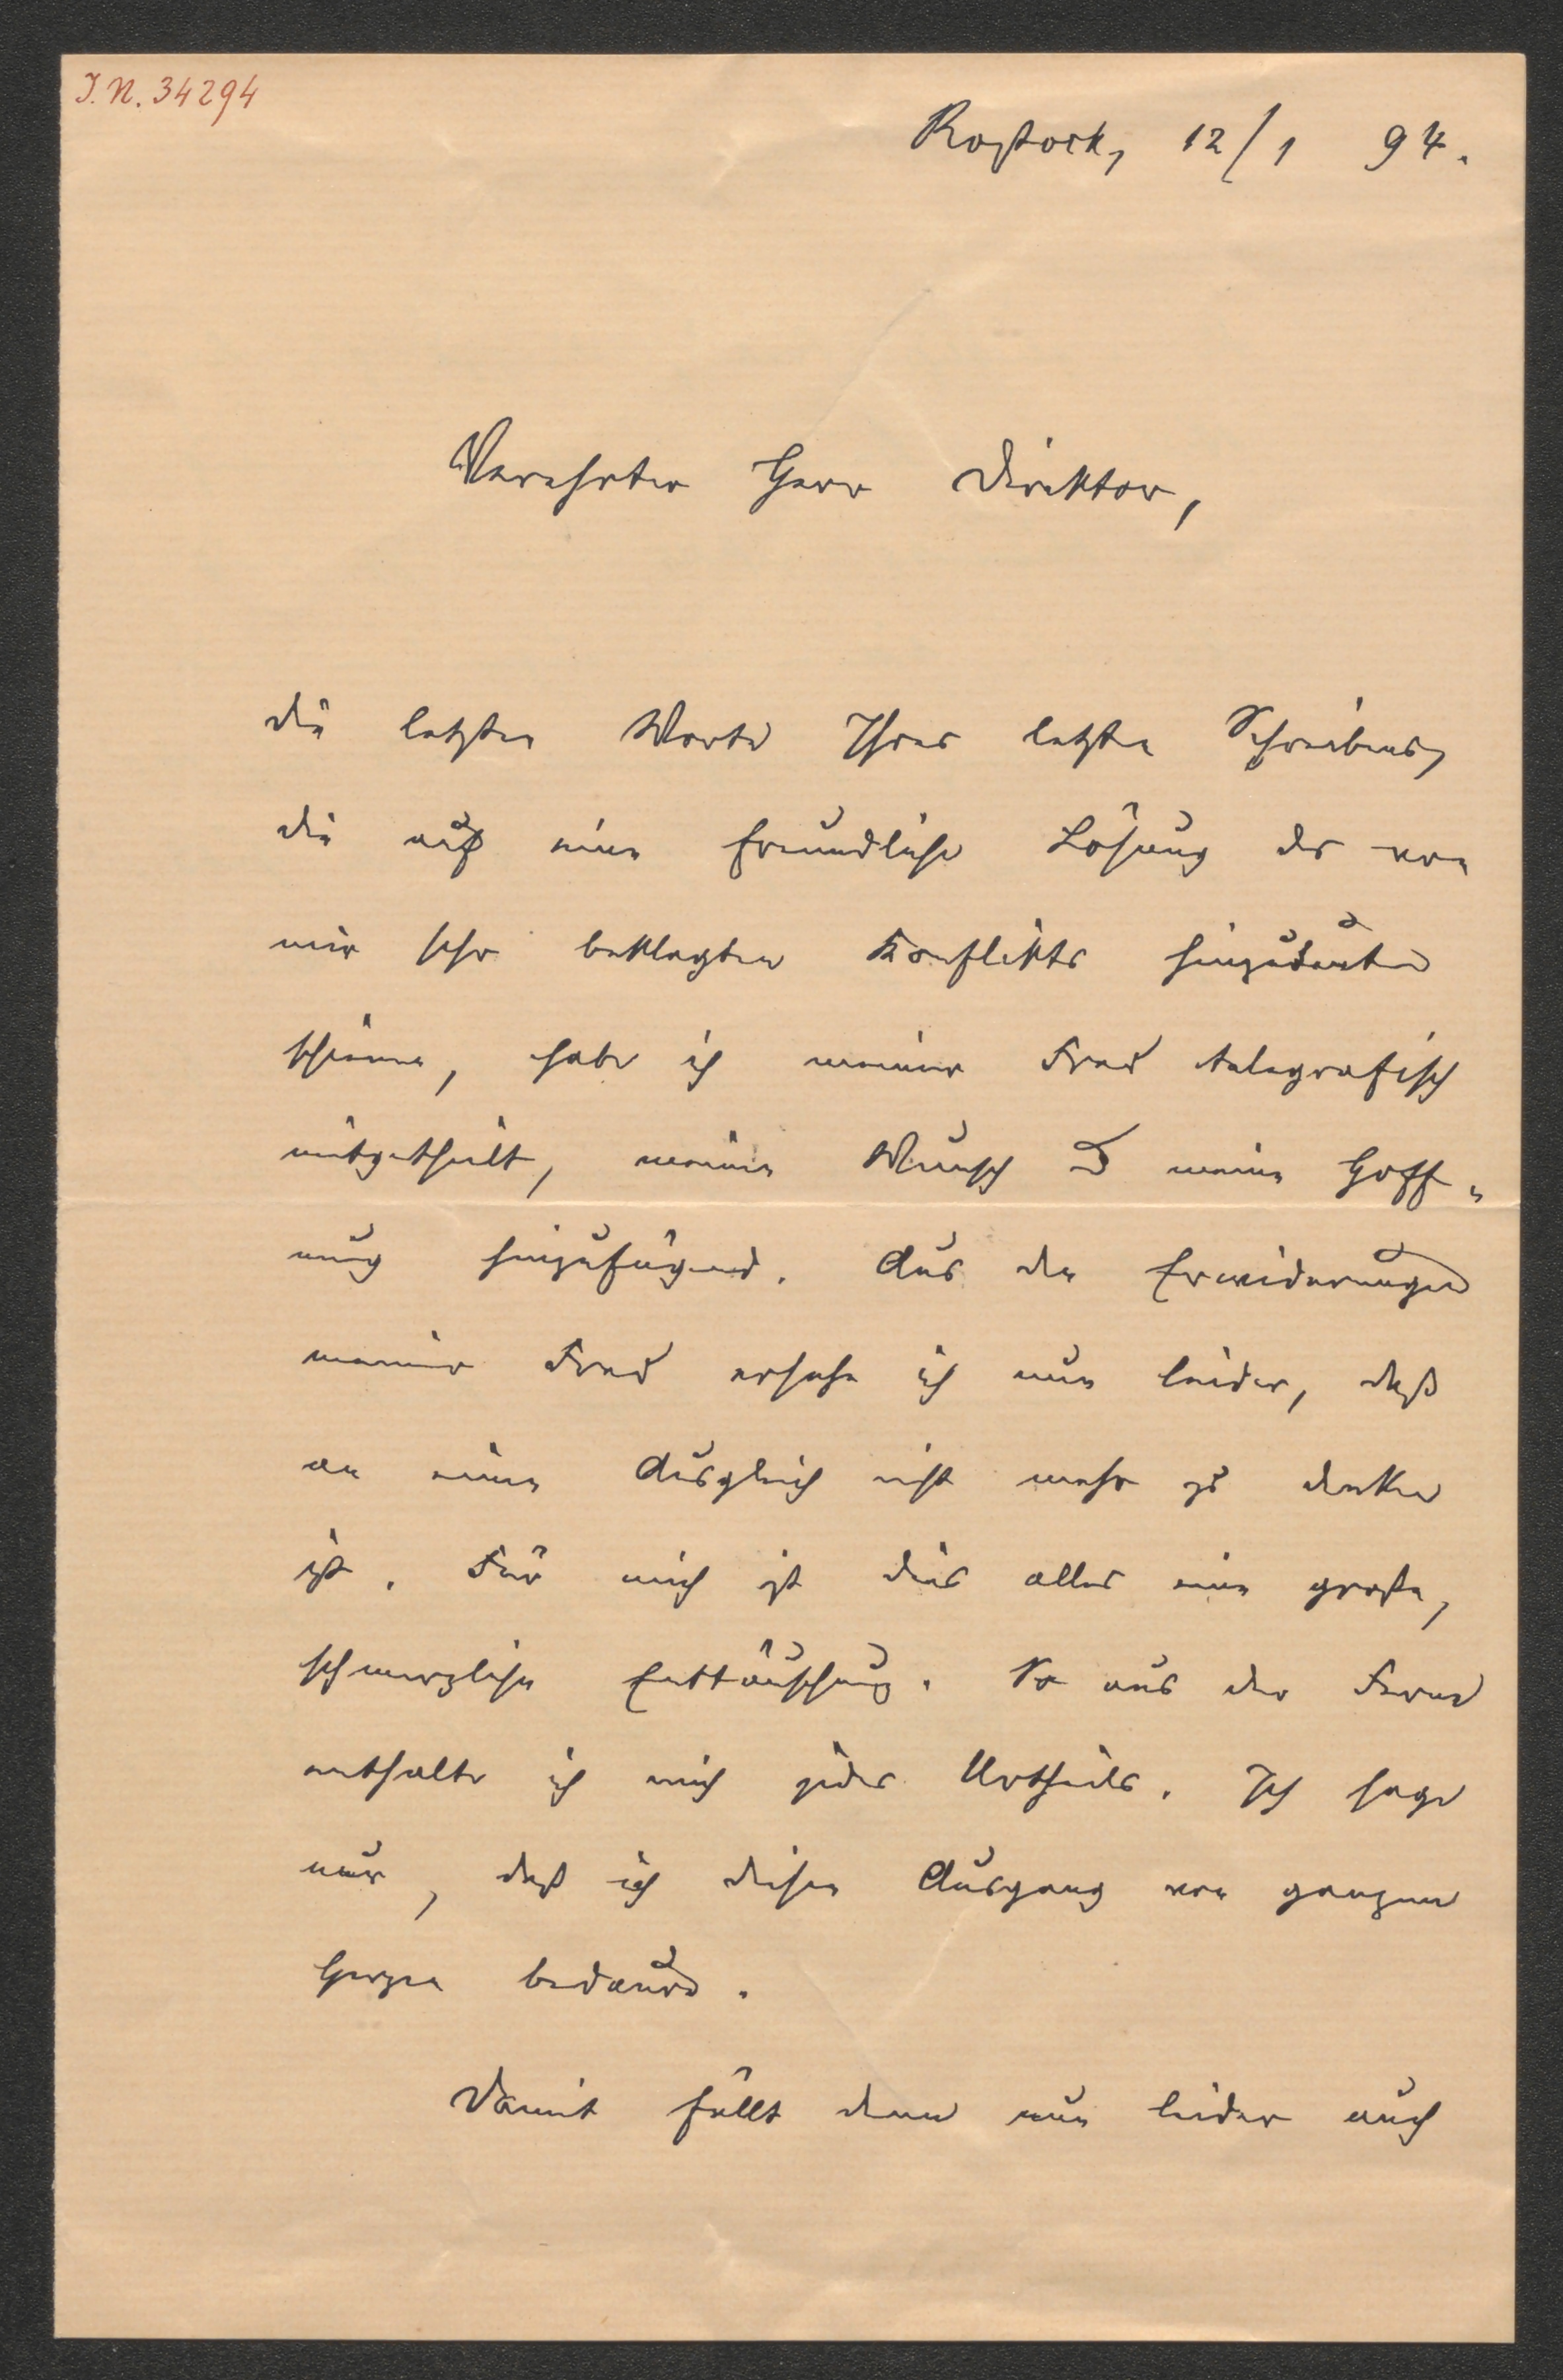 J. N. 34294
Rostock, 12/1 94.
Verehrter Herr Direktor,
die letzten Worte Ihres letzten Schreibens,
die auf eine freundliche Lösung des von
mir sehr beklagten Konflikts hinzudeuten
schienen, habe ich meiner Frau telegrafisch
mitgetheilt, meinen Wunsch u meine Hoff-
nung hinzufügend. Aus den Erwiderungen
meiner Frau ersehe ich nun leider, daß
an einen Ausgleich nicht mehr zu denken
ist. Für mich ist dies alles eine große,
schmerzliche Enttäuschung. So aus der Ferne
enthalte ich mich jedes Urtheils. Ich sage
nur, daß ich diesen Ausgang von ganzem
Herzen bedaure.
Damit fällt denn nun leider auch